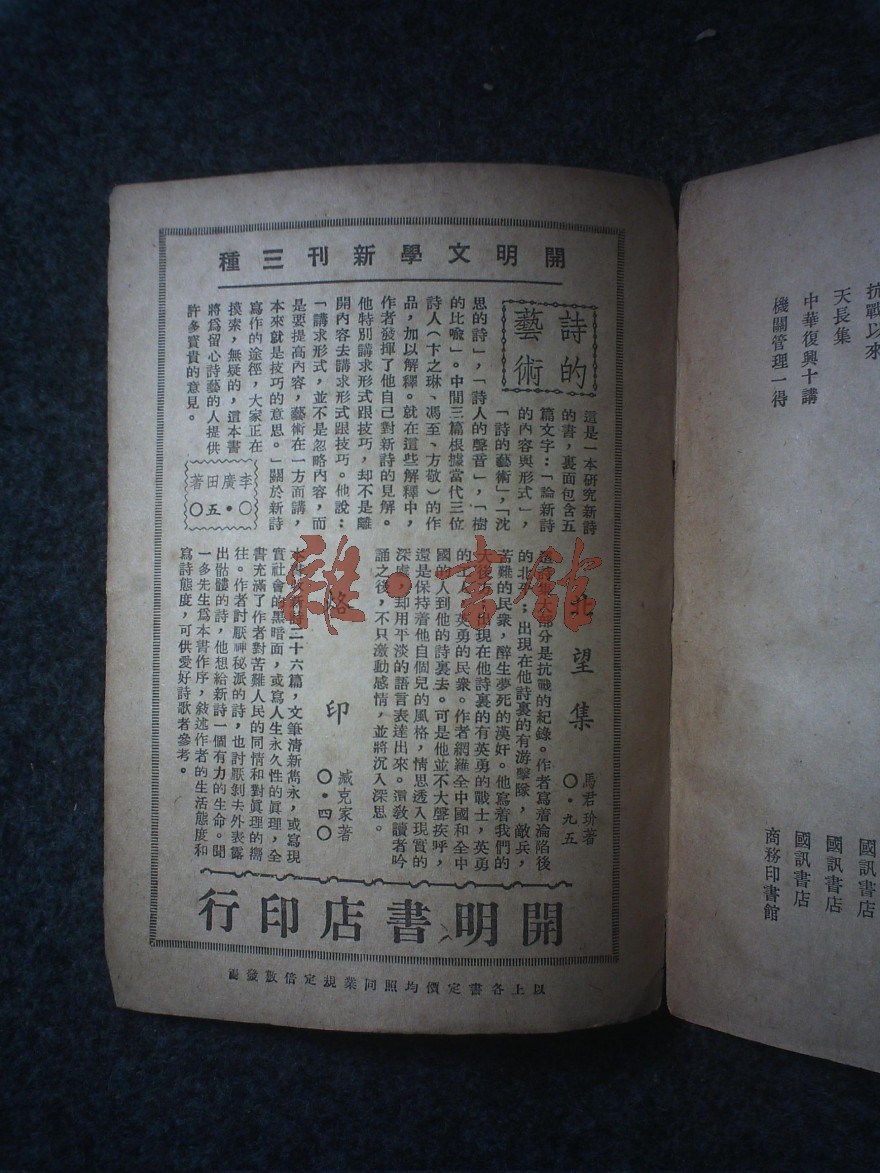 開明文學新刊三種
詩的
藝術
這是一本研究新詩
的書,裏面包含五
篇文字:「論新詩
的內容與形式」,
「詩的藝術」,「沈
思的詩」,「詩人的聲音」,「樹
的比喩」。中間三篇根據當代三位
詩人(卞之琳、馮至、方敬)的作
品,加以解釋。就在這些解釋中,
作者發揮了他自己對新詩的見解。
他特別講求形式跟技巧,却不是離
開內容去講求形式跟技巧。他說:
「講求形式,並不是忽略內容,而
是要提高內容,藝術在一方面講,
本來就是技巧的意思。」關於新詩
寫作的途徑,大家正在
摸索,無疑的,這本書
將爲留心詩藝的人提供
許多寶貴的意見。
李廣田著
〇•五〇
北望集
馬君玠著
〇•九五
部分是抗戰的紀錄。作者寫着淪陷後
的北平;出現在他詩裏的有游擊隊,敵兵,
苦難的民衆,醉生夢死的漢奸。他寫着我們的
大後方,出現在他詩裏的有英勇的戰士,英勇
的工人,英勇的民衆。作者網羅全中國和全中
國的人到他的詩裏去。可是他並不大聲疾呼,
還是保持着他自個兒的風格,情思透入現實的
深處,却用平淡的語言表達出來。須敎讀者吟
誦之後,不只激動感情,並將沉入深思。
烙印
臧克家著
〇•四〇
本書收新詩二十六篇,文筆清新雋永,或寫現
實社會的黑暗面,或寫人生永久性的眞理,全
書充滿了作者對苦難人民的同情和對眞理的嚮
往。作者討厭神秘派的詩,也討厭剝去外表露
出骷髏的詩,他想給新詩一個有力的生命。聞
一多先生爲本書作序,敍述作者的生活態度和
寫詩態度,可供愛好詩歌者參考。
開明書店印行
以上各書定價均照同業規定倍數發售
抗戰以來
國訊書店
天長集
國訊書店
中華復興十講
國訊書店
機關管理一得
商務印書館
雜•書館